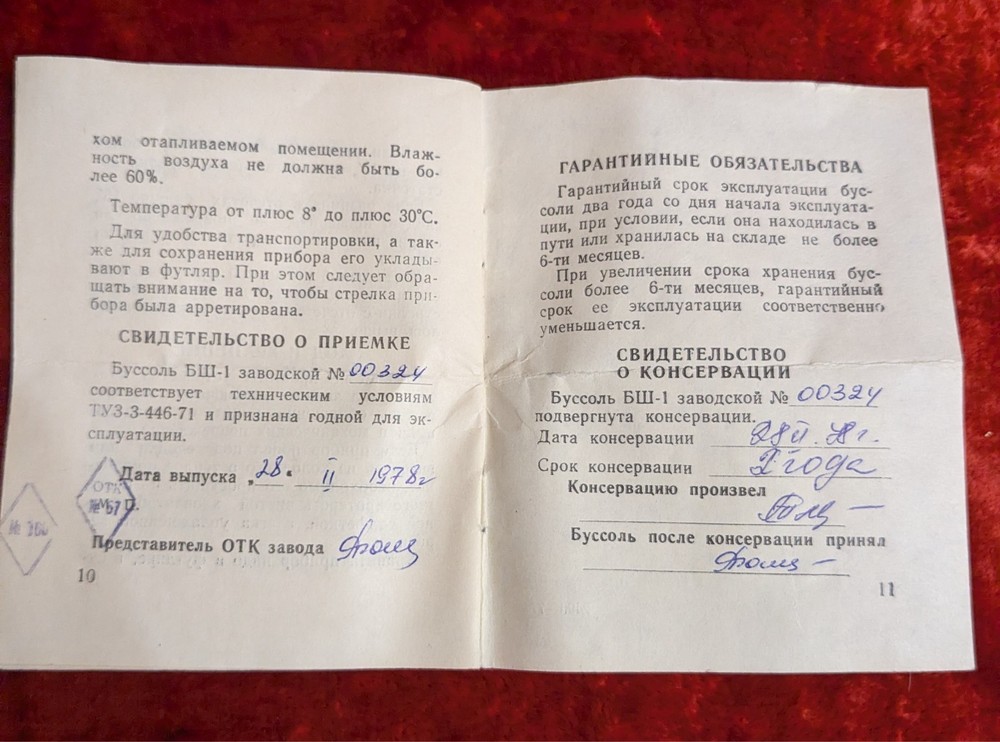 хом отапливаемом помещении. Влаж-
ность воздуха не должна быть бо-
лее 60%.
Температура от плюс 8° до плюс 30°С.
Для удобства транспортировки, а так-
же для сохранения прибора его уклады-
вают в футляр. При этом следует обра-
щать внимание на то, чтобы стрелка при-
бора была арретирована.
СВИДЕТЕЛЬСТВО О ПРИЕМКЕ
Буссоль БШ-1 заводской № 00324
соответствует техническим условиям
ТУЗ-3-446-71 и признана годной для эк-
сплуатации.
Дата выпуска „28“ II 1978г
ОТК
М. П.
№ 67
Представитель ОТК завода
10
ГАРАНТИЙНЫЕ ОБЯЗАТЕЛЬСТВА
Гарантийный срок эксплуатации бус-
соли два года со дня начала эксплуата-
ции, при условии, если она находилась в
пути или хранилась на складе не более
6-ти месяцев.
При увеличении срока хранения бус-
соли более 6-ти месяцев, гарантийный
срок ее эксплуатации соответственно
уменьшается.
СВИДЕТЕЛЬСТВО
О КОНСЕРВАЦИИ
Буссоль БШ-1 заводской № 00324
подвергнута консервации.
Дата консервации 28 II. 78г.
Срок консервации 2 года
Консервацию произвел
Буссоль после консервации принял
11